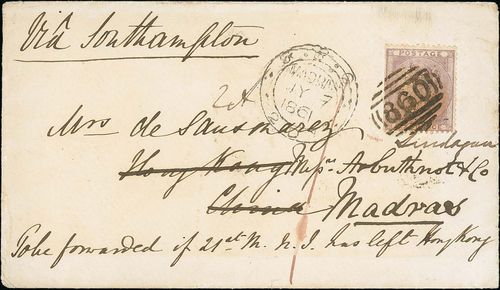 Via Southampton
POSTAGE
MADRAS
JY 7
1861
860
2d
Mrs de Sausmarez
Hong Kong Messrs Arbuthnot & Co
China Madras
To be forwarded if 21st M. N. I. has left Hong Kong